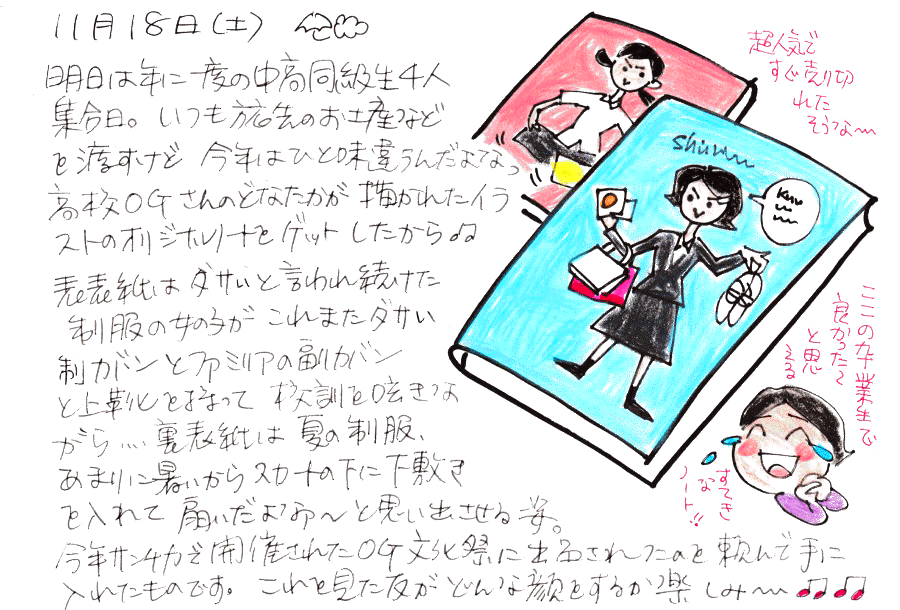 11月18日(土)
明日は年に一度の中高同級生4人
集合日。いつも旅先のお土産など
を渡すけど 今年はひと味違うんだよな。
高校OGさんのどなたかが 描かれたイラ
ストのオリジナルノートをゲットしたから♪♪
表表紙はダサいと言われ続けた
制服の女の子が これまたダサい
制カバンとファミリアの副カバン
と上靴を持って 校訓を呟きな
がら.... 裏表紙は 夏の制服、
あまりに暑いからスカートの下に下敷き
を入れて 扇いだよね〜と思い出させる姿。
今年サンチカで開催されたOG文化祭に出品されたのを頼んで手に
入れたものです。これを見た友がどんな顔をするか楽しみ〜♫♫
超人気で
すぐ売り切
れた
そうな〜
ここの卒業生で
良かったて
と思
える
すてき
な
ノート!!